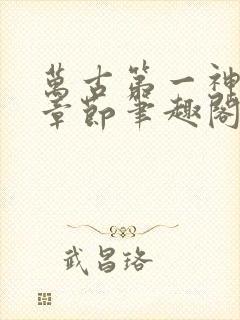 萬古第一神
章節筆趣閣
武昌珞